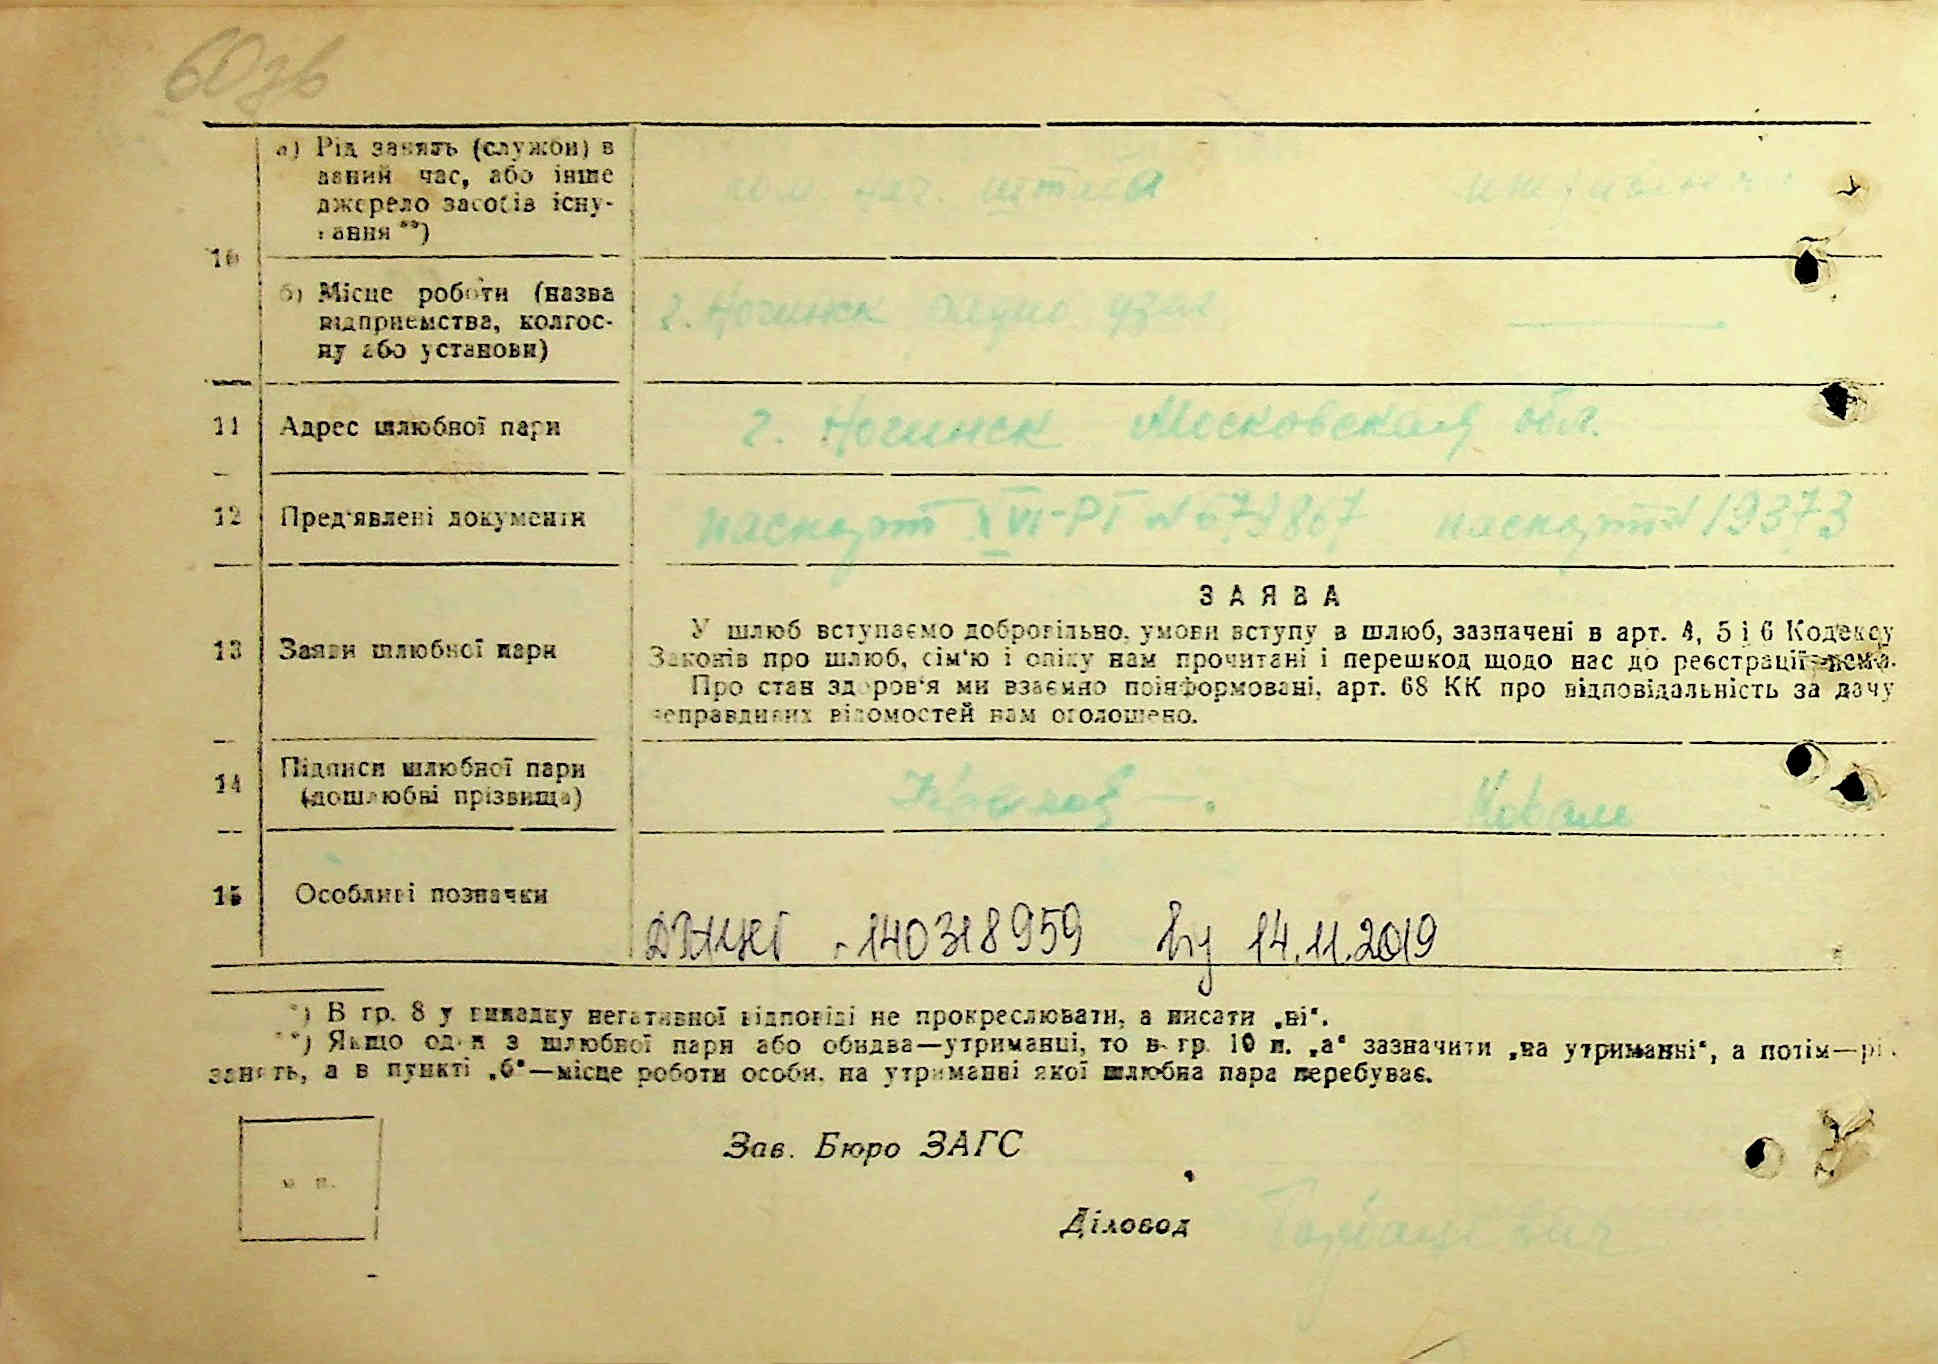 60зв
а) Рід занять (служби) в
даний час, або інше
джерело засобів існу-
вання **)
нач.
10
б) Місце роботи (назва
відприємства, колгос-
пу або установи)
г. Ногинск радио узел
11 Адрес шлюбної пари г. Ногинск Московская обл.
12 Пред'явлені документи паспорт паспорт № 19373
ЗАЯВА
13 Заяви шлюбної пари
У шлюб вступаємо добровільно, умови вступу в шлюб, зазначені в арт. 4, 5 і 6 Кодексу
Законів про шлюб, сім'ю і опіку нам прочитані і перешкод щодо нас до реєстрації нема.
Про стан здоров'я ми взаємно поінформовані, арт. 68 КК про відповідальність за дачу
неправдивих відомостей нам оголошено.
14 Підписи шлюбної пари
(дошлюбні прізвища)
15 Особливі позначки
140318959 14.11.2019
*) В гр. 8 у випадку негативної відповіді не прокреслювати, а писати „ні“.
**) Якщо один з шлюбної пари або обидва—утриманці, то в гр. 10 п. „а“ зазначити „на утриманні“, а потім—рід
занять, а в пункті „б“—місце роботи особи, на утриманні якої шлюбна пара перебуває.
Зав. Бюро ЗАГС
м. п.
Діловод